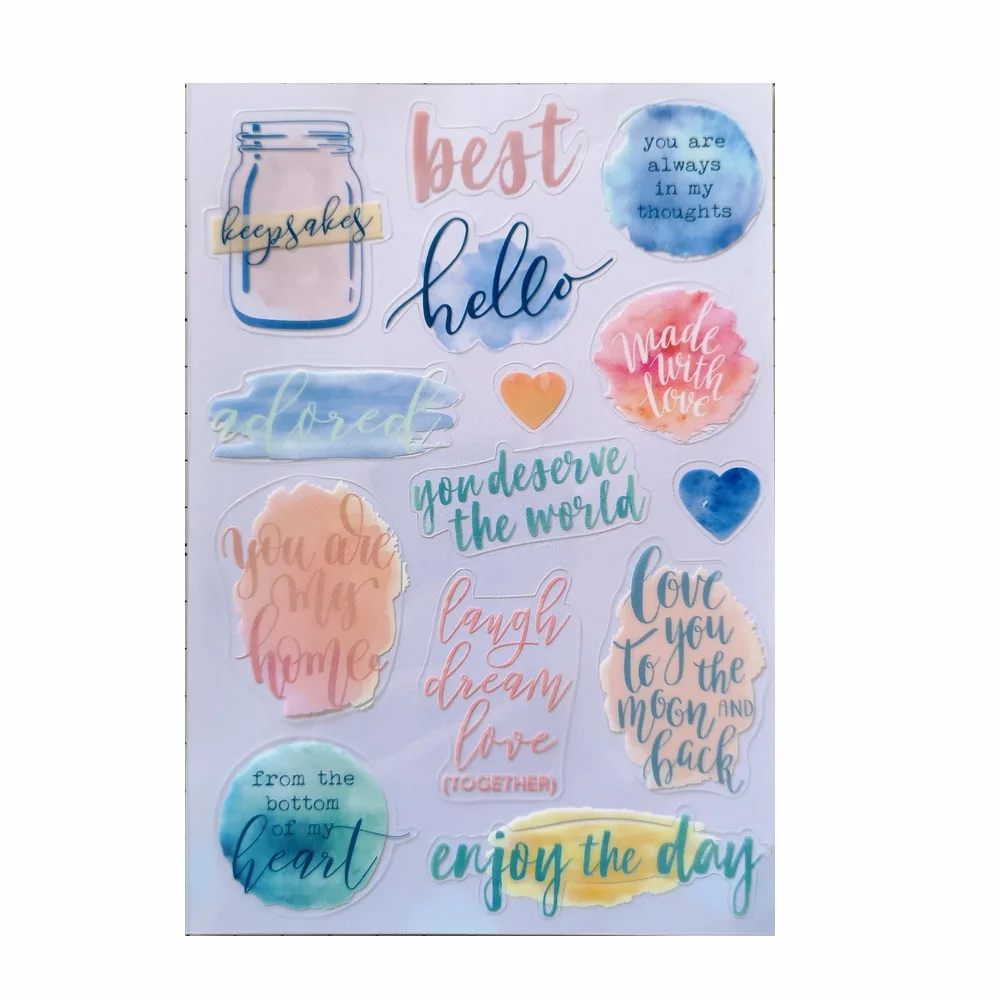 keepsakes
best
you are
always
in my
thoughts
hello
made
with
love
adored
you deserve
the world
you are
my
home
laugh
dream
love
(TOGETHER)
love
you
to the
moon AND
back
from the
bottom
of my
heart
enjoy the day